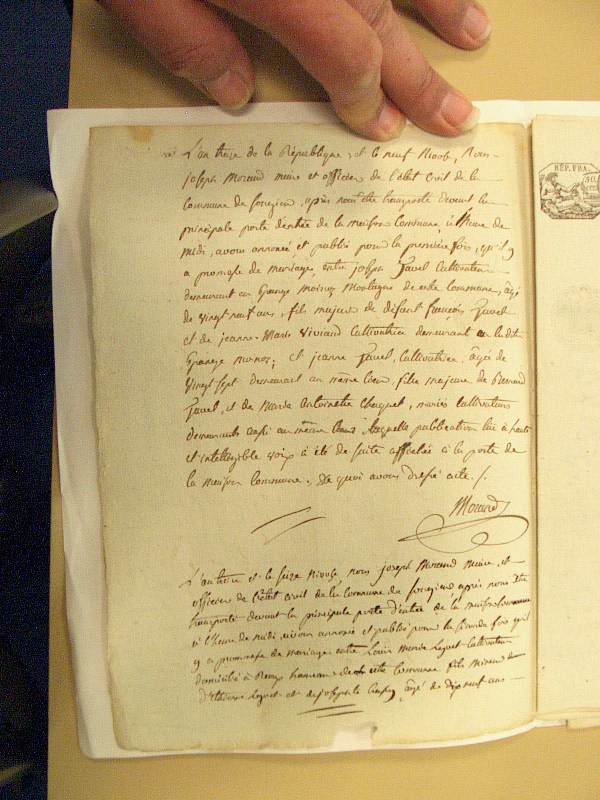 L'an treize de la République, et le neuf Nivose, Nous
joseph Morand maire et officier de l'état civil de la
Commune de songieu, après nous être transporté devant la
principale porte d'entrée de la maison Commune, à l'heure de
midi, avons annoncé et publié pour la première fois, qu'il y
a promesse de mariage, entre joseph Juvel Cultivateur
demeurant au Grange Montagne de cette Commune, âgé
de vingt neuf ans, fils majeur de défunt françois Juvel
et de jeanne-Marie Viviand Cultivatrice demeurant au dit
Grange; et jeanne Juvel, Cultivatrice, agée de
vingt sept demeurant au même lieu, fille majeure de Bernard
Juvel, et de Marie Antoinette mariés Cultivateurs
demeurants aussi au même lieu; laquelle publication lue à haute
et intelligible voix a été de suite affichée à la porte de
la maison Commune, De quoi avons dressé acte./.
Morand
L'an treize et le seize Nivose, nous joseph Morand Maire et
officier de l'état civil de la Commune de songieu après nous être
transporté devant la principale porte d'entrée de la maison Commune
à l'heure de midi, avons annoncé et publié pour la seconde fois qu'il
y a promesse de mariage entre Louis Marie Cultivateur
domicilié à hameau de cette Commune fils mineur
d'Etienne et de josephte âgé de dix neuf ans
RÉP. FRA.